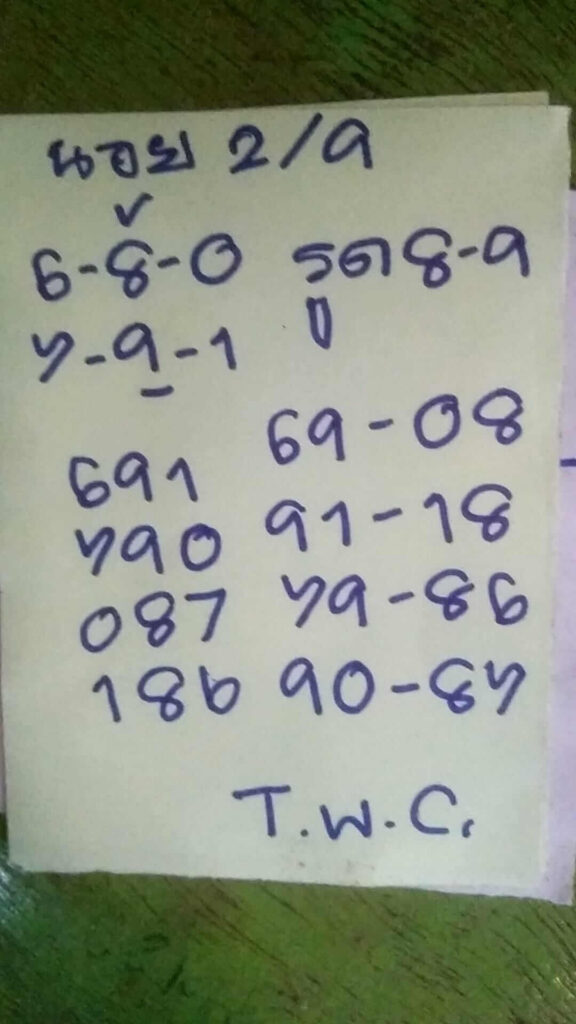 นอย 2/9
6-8-0 รูด 8-9
7-9-1
691 69-08
790 91-18
087 79-86
186 90-87
T.W.C.